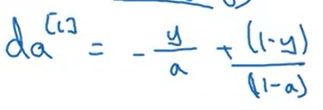 da^[1] = - y/a + (1-y)/(1-a)